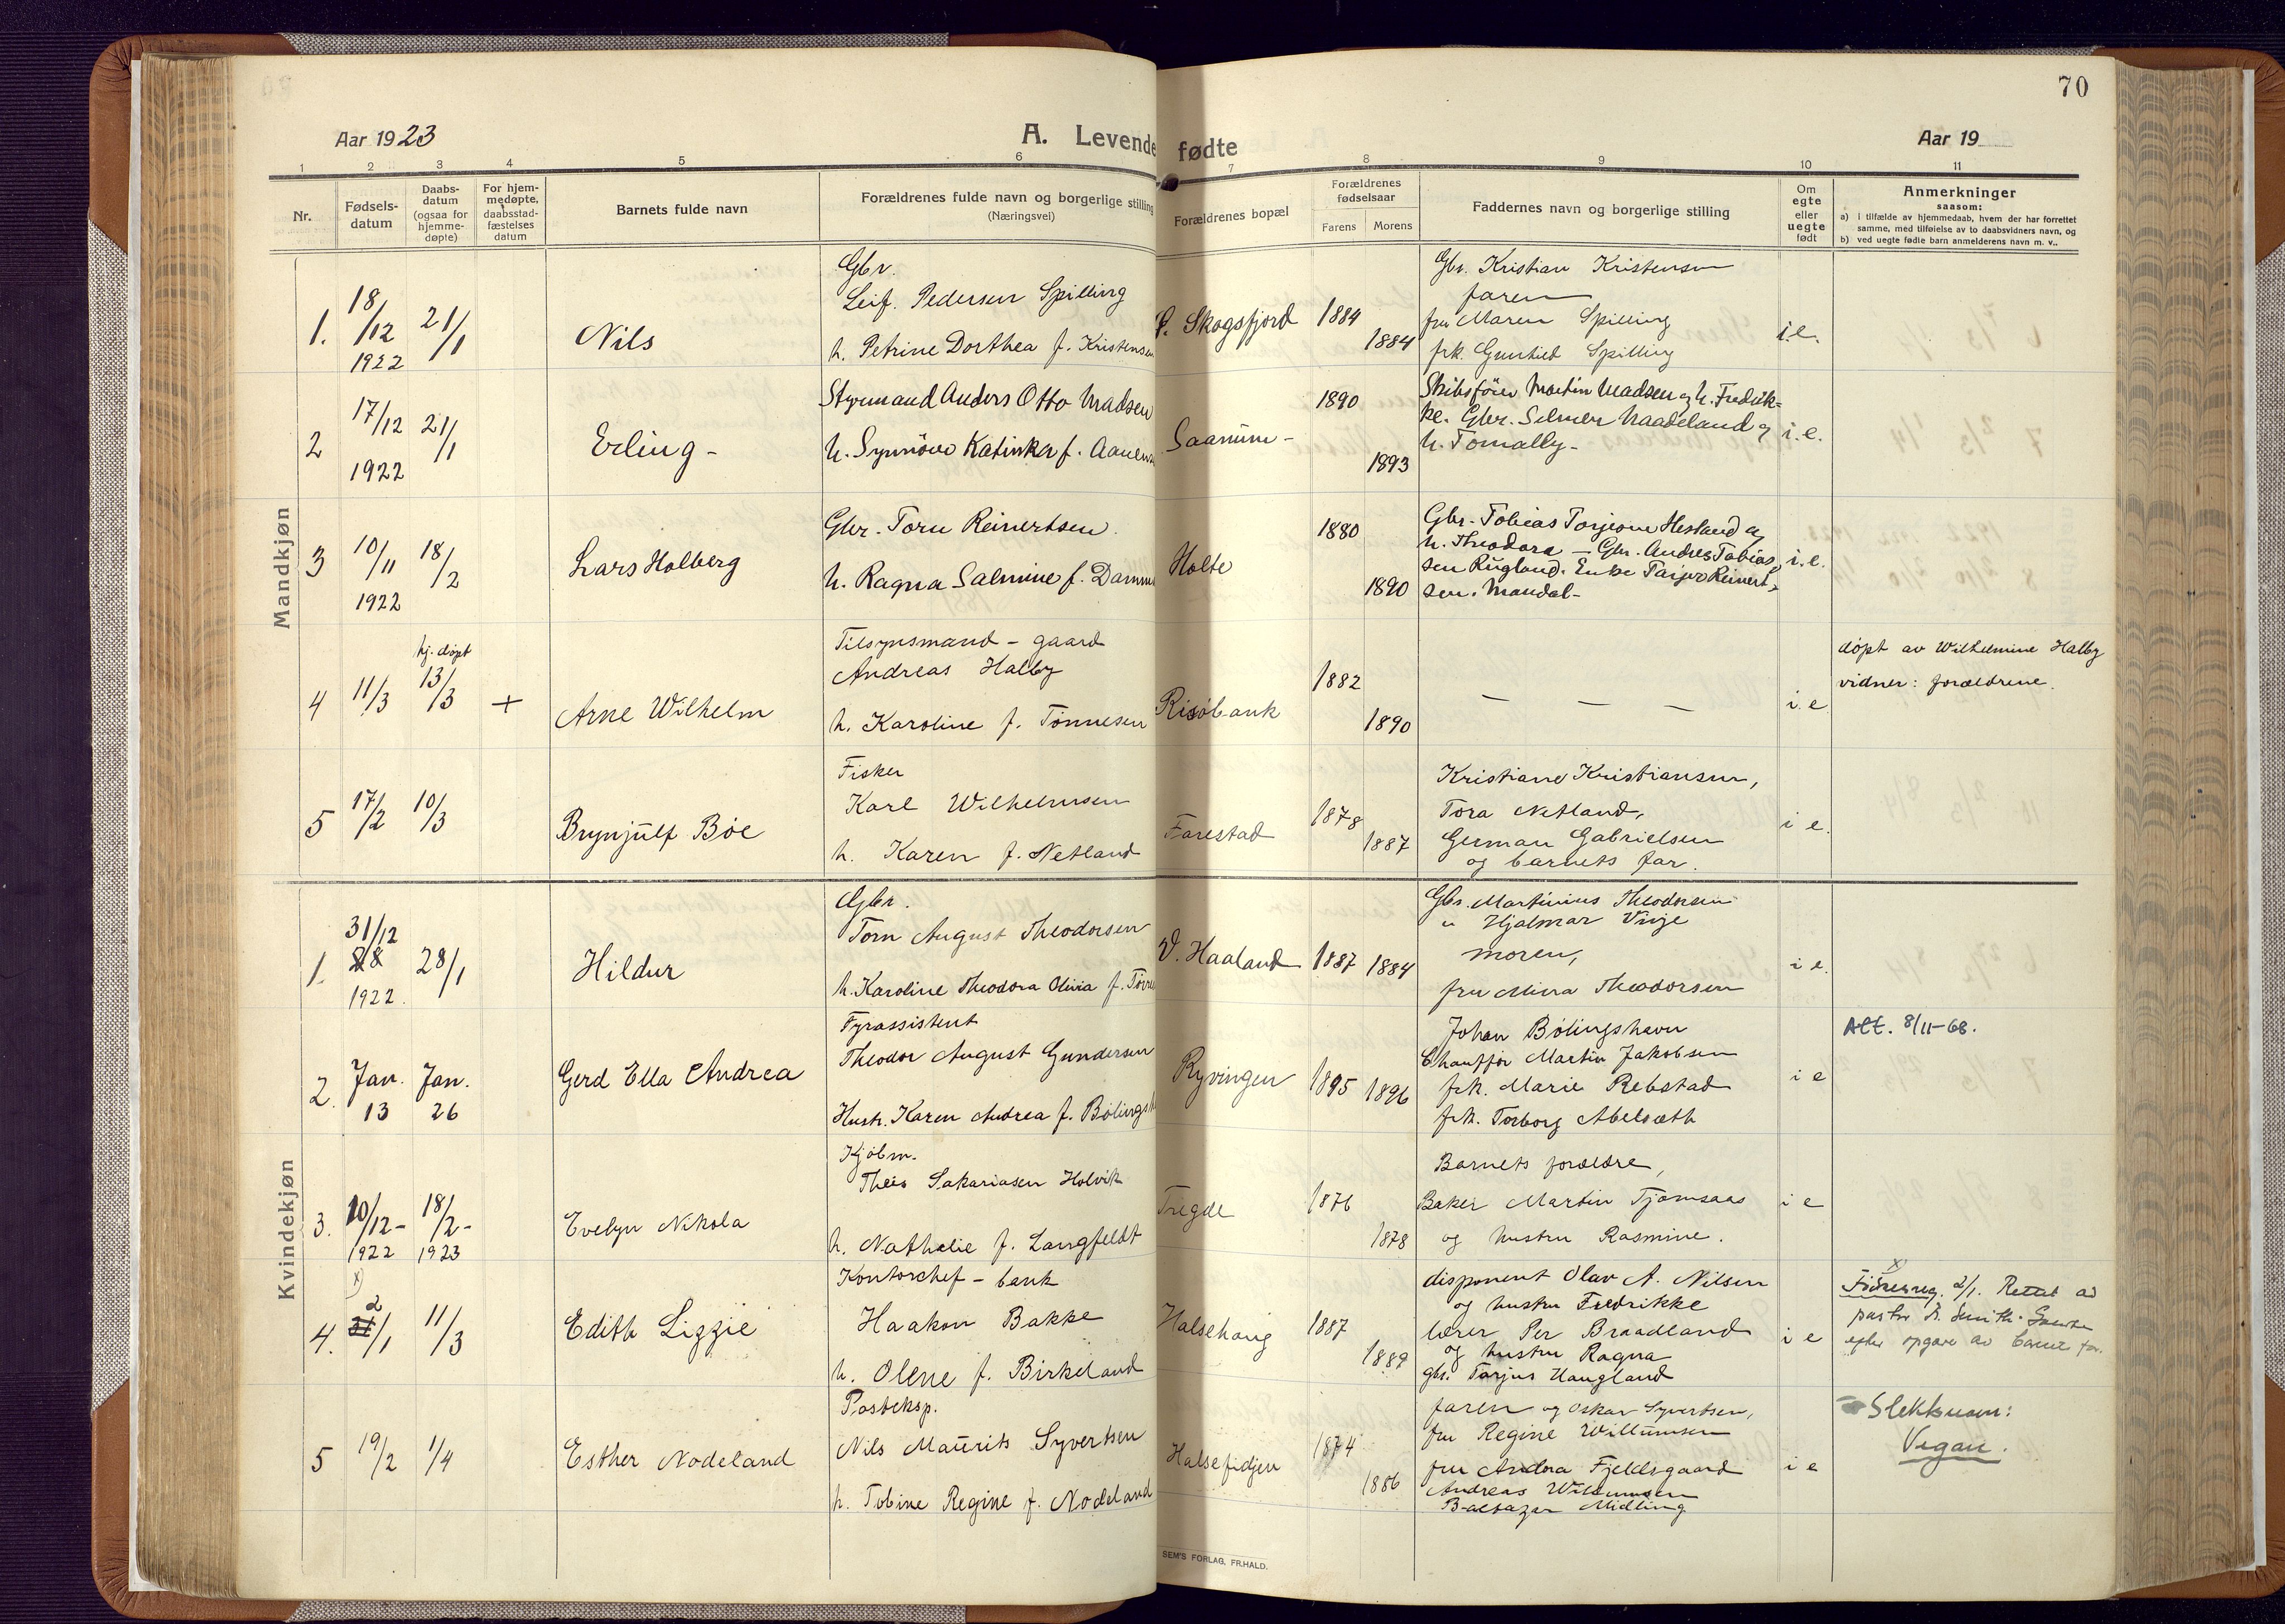 70
Aar 1923
A. Levende fødte
Aar 19
1 2 3 4 5 6 7 8 9 10 11
Nr.
Fødsels-
datum
Daabs-
datum
(ogsaa for
hjemme-
døpte)
For hjem-
medøpte,
daabsstad-
fæstelses
datum
Barnets fulde navn
Forældrenes fulde navn og borgerlige stilling
(Næringsvei)
Forældrenes bopæl
Forældrenes
fødselsaar
Farens Morens
Faddernes navn og borgerlige stilling
Om
egte
eller
uegte
født
Anmerkninger
saasom:
a) i tilfælde av hjemmedaab, hvem der har forrettet
samme, med tilføielse av to daabsvidners navn, og
b) ved uegte fødte barn anmelderens navn m. v..
Mandkjøn
1. 18/12 1922 21/1
Nils
Gbr.
Leif Pedersen Spilling
h. Petrine Dorthea f. Kristensen
Skogsfjord
1884
1884
Gbr. Kristian Kristensen
faren
fru Maren Spilling
frk. Gunhild Spilling
i.e.
2 17/12 1922 21/1
Erling -
Styrmand Anders Otto Madsen
h. Synnöve Katinka f.
Saanum -
1890
1893
Skibsförer Martin Madsen og h. Fredrik-
ke. Gbr. Selmer Naadeland og
h. Tomally -
i.e.
3 10/11 1922 18/2
Lars Holberg
Gbr. Toru Reinertsen
h. Ragna Salmine f.
Holte
1880
1890
Gbr. Tobias Torjesen Hesland og
h. Theodora - Gbr. Andres Tobias-
sen Rugland. Enke Reinert-
sen. Mandal -
i.e.
4 11/3 hj. døpt 13/3 +
Arne Wilhelm
Tilsynsmand - gaard
Andreas Halby
h. Karoline f. Tönnesen
Risöbank
1882
1890
— — —
i.e
døpt av Wilhelmine Halby
vidner: forældrene.
5 17/2 10/3
Brynjulf Böe
Fisker
Karl Wilhelmsen
h. Karen f. Netland
Farestad
1878
1887
Kristiane Kristiansen,
Tora Netland,
German Gabrielsen
og barnets far.
i e.
Kvindekjøn
1. 31/12 1922. 28/1
Hildur
Gbr.
Tom August Theodorsen
h. Karoline Theodora Olivia f.
V. Haaland
1887 1884
Gbr. Martinius Theodorsen
" Hjalmar Vinje
moren,
fru Mina Theodorsen
i e.
2. Jan. 13 Jan. 26
Gerd Ella Andrea
Fyrassistent
Theodor August Gundersen
Hustr. Karen Andrea f.
Ryvingen
1895 1896
Johan Bölingshavn
Chaufför Martin Jakobsen
frk. Marie Rebstad
frk. Torborg Abelsæth
i e
Att. 8/11-68.
3. 10/12- 1922 18/2- 1923
Evelyn Nikola
Kjøbm.
Theis Sakariasen Holvik
h. Nathalie f. Langfeldt
Tregde
1876
1878
Barnets forældre,
Baker Martin Tjomsaas
og hustru Rasmine.
i e
4. x) 2/1 11/3
Edith Lizzie
Kontorchef - bank
Haakon Bakke
h. Olene f. Birkeland
Halsehaug
1887
1889
disponent Olav A. Nilsen
og hustru Fredrikke
lærer Per Braadland
og hustru Ragna
gbr. Tarjus Haugland
i e
x)
2/1. Rettet av
5 19/2 1/4
Esther Nodeland
Posteksp.
Nils Maurits Syvertsen
h. Tobine Regine f. Nodeland
Halsefidjen
1874
1886
faren og Oskar Syvertsen,
fru Regine Willumsen
fru Andrea Fjeldsgaard
Andreas Willumsen
Baltazar Midling
i e
Slektsnavn:
Vegan.
SEM'S FORLAG, FR.HALD.